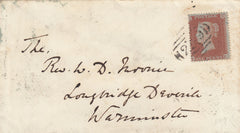 The.
Rev. W. D. Moorie
Longbridge Deverill
Warminster